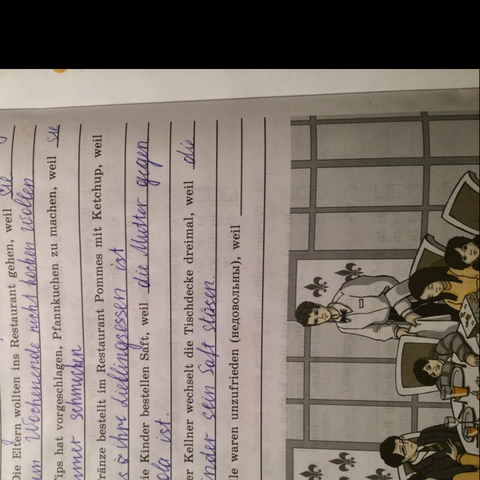 Die Eltern wollten ins Restaurant gehen, weil sie
Wochenende nicht kochen wollen
Tips hat vorgeschlagen, Pfannkuchen zu machen, weil sie
mmer schmecken
ränze bestellt im Restaurant Pommes mit Ketchup, weil
s ihre Lieblingsessen ist
ie Kinder bestellen Saft, weil die Mutter gegen
ola ist.
er Kellner wechselt die Tischdecke dreimal, weil die
inder sein Saft
lle waren unzufrieden (недовольны), weil